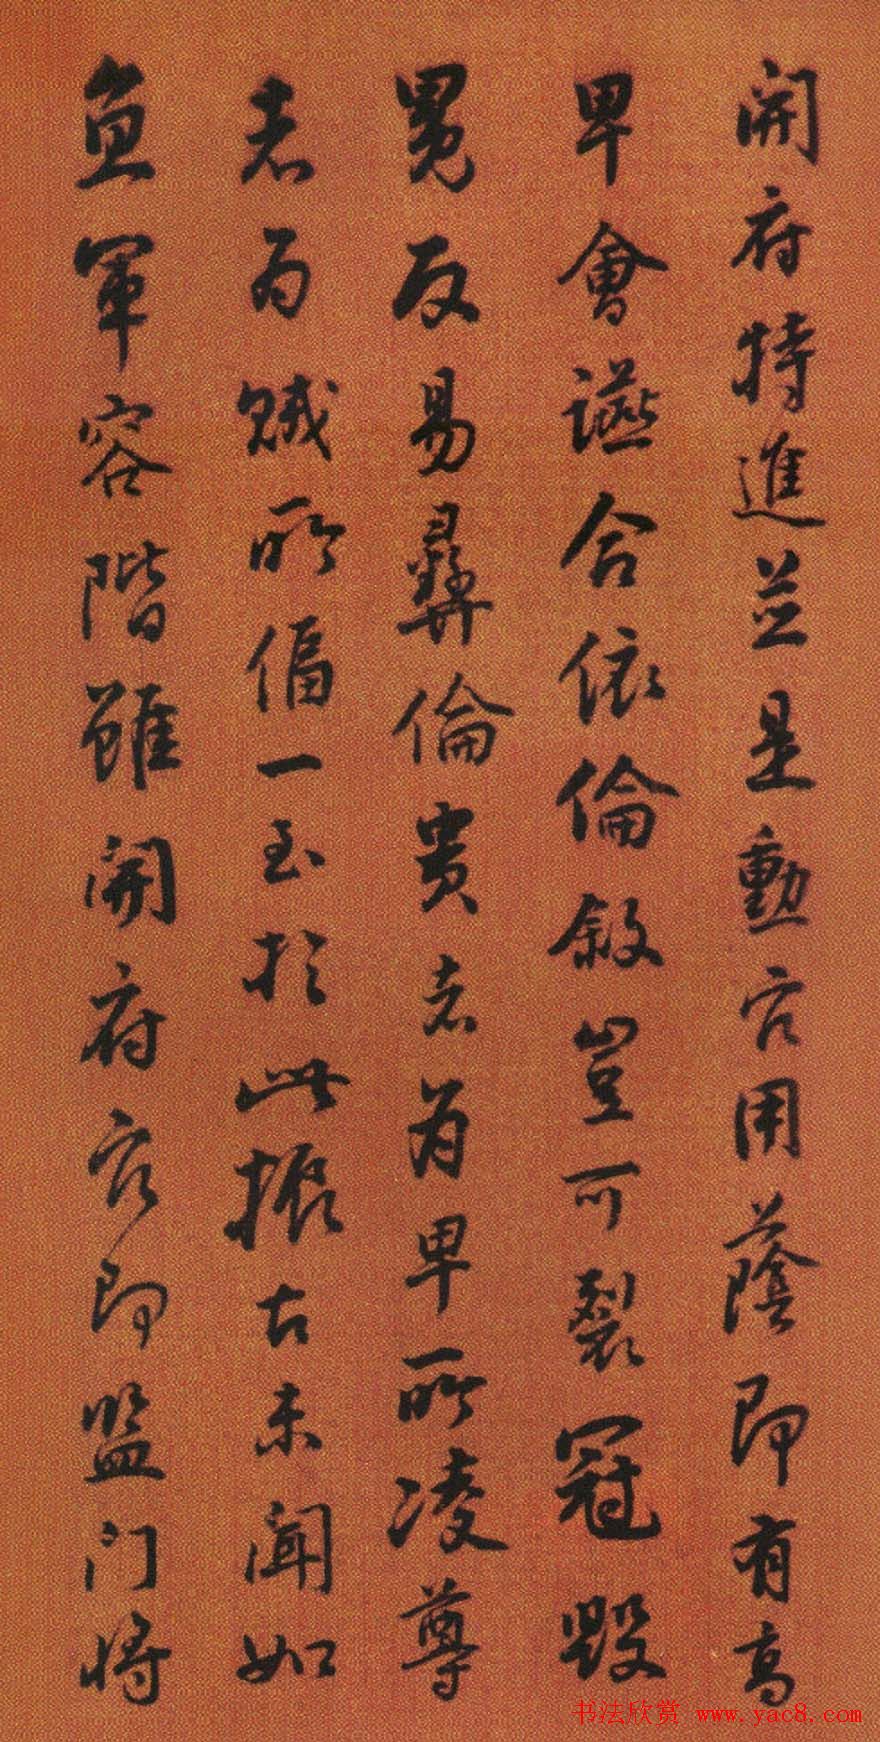 開府特進並是勳官用蔭即有高
卑會讌合依倫敘豈可裂冠毀
冕反易彝倫貴者為卑所凌尊
者為賊所偪一至於此振古未聞如
魚軍容階雖開府官即監门将
书法欣赏 www.yac8.com